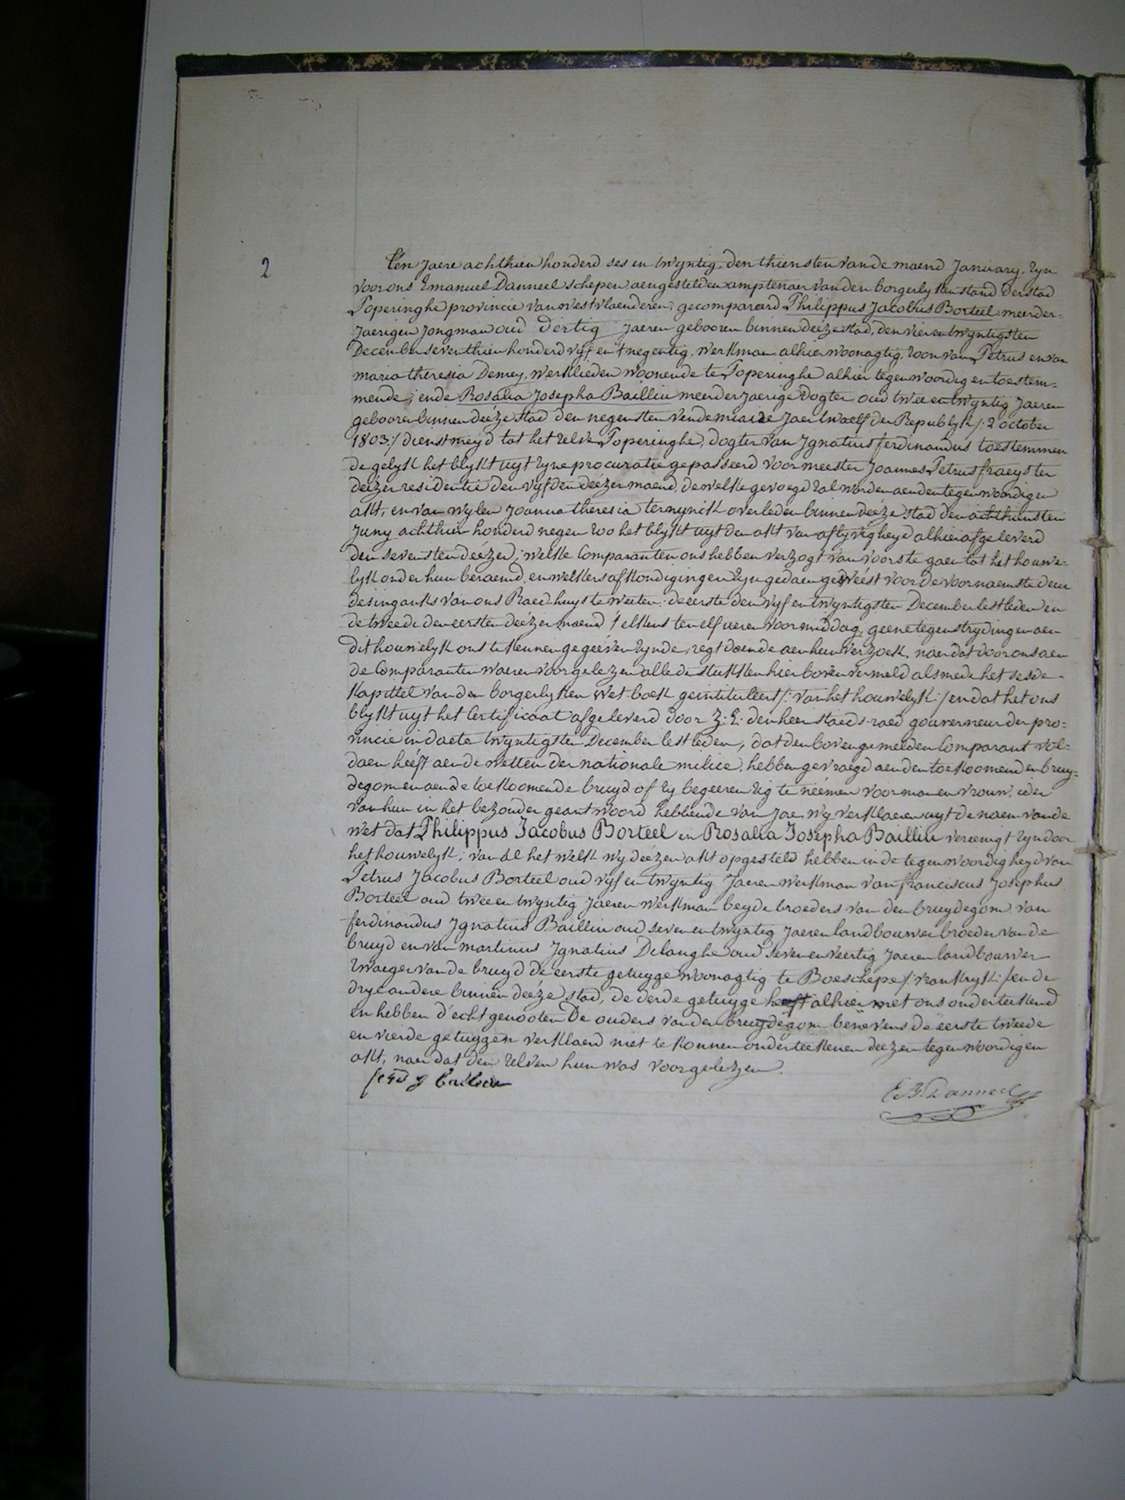 2
t'en Jaere achthien honderd ses en twyntig, den thiensten van de maend January, zyn
voor ons Emanuel Danneel schepen aengestelden amptenaer van den borgerlyken stand der stad
Poperinghe provincie van westvlaenderen, gecomparard Philippus Jacobus Borteel meerder-
jaerigen Jongman oud dertig jaeren gebooren binnen deeze stad, den vier en twyntigsten
December seventhien honderd vyf en t negentig, werkman alhier woonagtig, zoon van Petrus en van
maria theresia Demey, werklieden woonende te Poperinghe alhier tegenwoordig en toestem-
mende; ende Rosalia Josepha Bailliu meerderjaerige Dogter oud twee en twyntig jaeren
gebooren binnen deeze stad den negensten Vendemiaire Jaer twaelf der Republyk /: 2 october
1803:/ dienstmeyd tot het zelve Poperinghe, dogter van Ignatius ferdinandus toestemmen
de gelyk het blykt uyt zyne procuratie gepasseerd voor meester Joannes Petrus fraeys ter
deezer residentie den vyfden deezer maend, de welke gevoegd zal worden aen den tegenwoordigen
akt, en van wylen Joanna theresia ternynck overleden binnen deeze stad den achthiensten
Juny achthien honderd negen zoo het blykt uyt den akt van aflyvigheyd alhier afgeleverd
den sevensten deezer; welke Comparanten ons hebben verzogt van voorste gaen tot het houwe-
lyk onder hun beraemd, en welkers afkondigingen zyn gedaen geweést voor de voornaemste deur
des ingank van ons Raedhuys te weeten: de eerste den vyf en twyntigsten December lestleden en
de tweede den eersten deézer maend, t'elkens ten elf ueren voormiddag, geene tegenstrydingen aen
dit houwelyk ons te kennen gegeéven zynde, regt doende aen hun verzoek, naer dat door ons aen
de Comparanten waeren voorgelezen alle de stukken hier boven vermeld alsmede het sesde
kapittel van den borgerlyken wet boek geintituleert /: van het houwelyk :/ en dat het ons
blykt uyt het Certificaat afgeleverd door Z: E: den heer staeds-raed gouverneur der pro-
vincie in daete twyntigsten December lestleden, dat den bovengemelden Comparant vol-
daen heéft aen de wetten der nationale milice, hebben gevraegd aen den toekoomenden bruy-
degom en aen de toekoomende bruyd of zy begeeren zig te néémen voor man en vrouw, ider
van hun in het bezonder geantwoord hebbende van Jae, wy verklaeren uyt de naem van de
wet dat Philippus Jacobus Borteel en Rosalia Josepha Bailliu vereenigt zyn door
het houwelyk; van al het welk wy deézen akt opgesteld hebben in de tegenwoordigheyd van
Petrus Jacobus Borteel oud vyf en twyntig Jaeren werkman van franciscus Josephus
Borteel oud twee en twyntig jaeren werkman beyde broeders van den bruydegom van
ferdinandus Ignatius Bailliu oud seven en twyntig Jaeren landbouwer broeder van de
bruyd en van martinus Ignatius Delanghe oud seven en veertig jaeren landbouwer
Zwaeger van de bruyd de eerste getuyge woonagtig te Boeschepe /: vrankryk :/ en de
drye andere binnen deéze stad, de derde getuyge heeft alhier met ons onderteekend
en hebben d'echtgenooten De ouders van den bruydegom benevens de eerste tweede
en vierde getuygen verklaerd niet te konnen onderteekenen deezen tegenwoordigen
akt, naer dat den zelven hun was voorgelezen.
E. J. Danneel